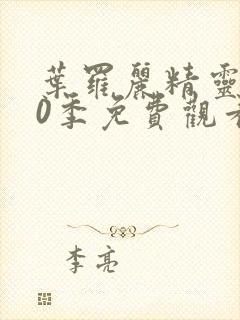 葉羅麗精靈
0季免費觀看
李亮